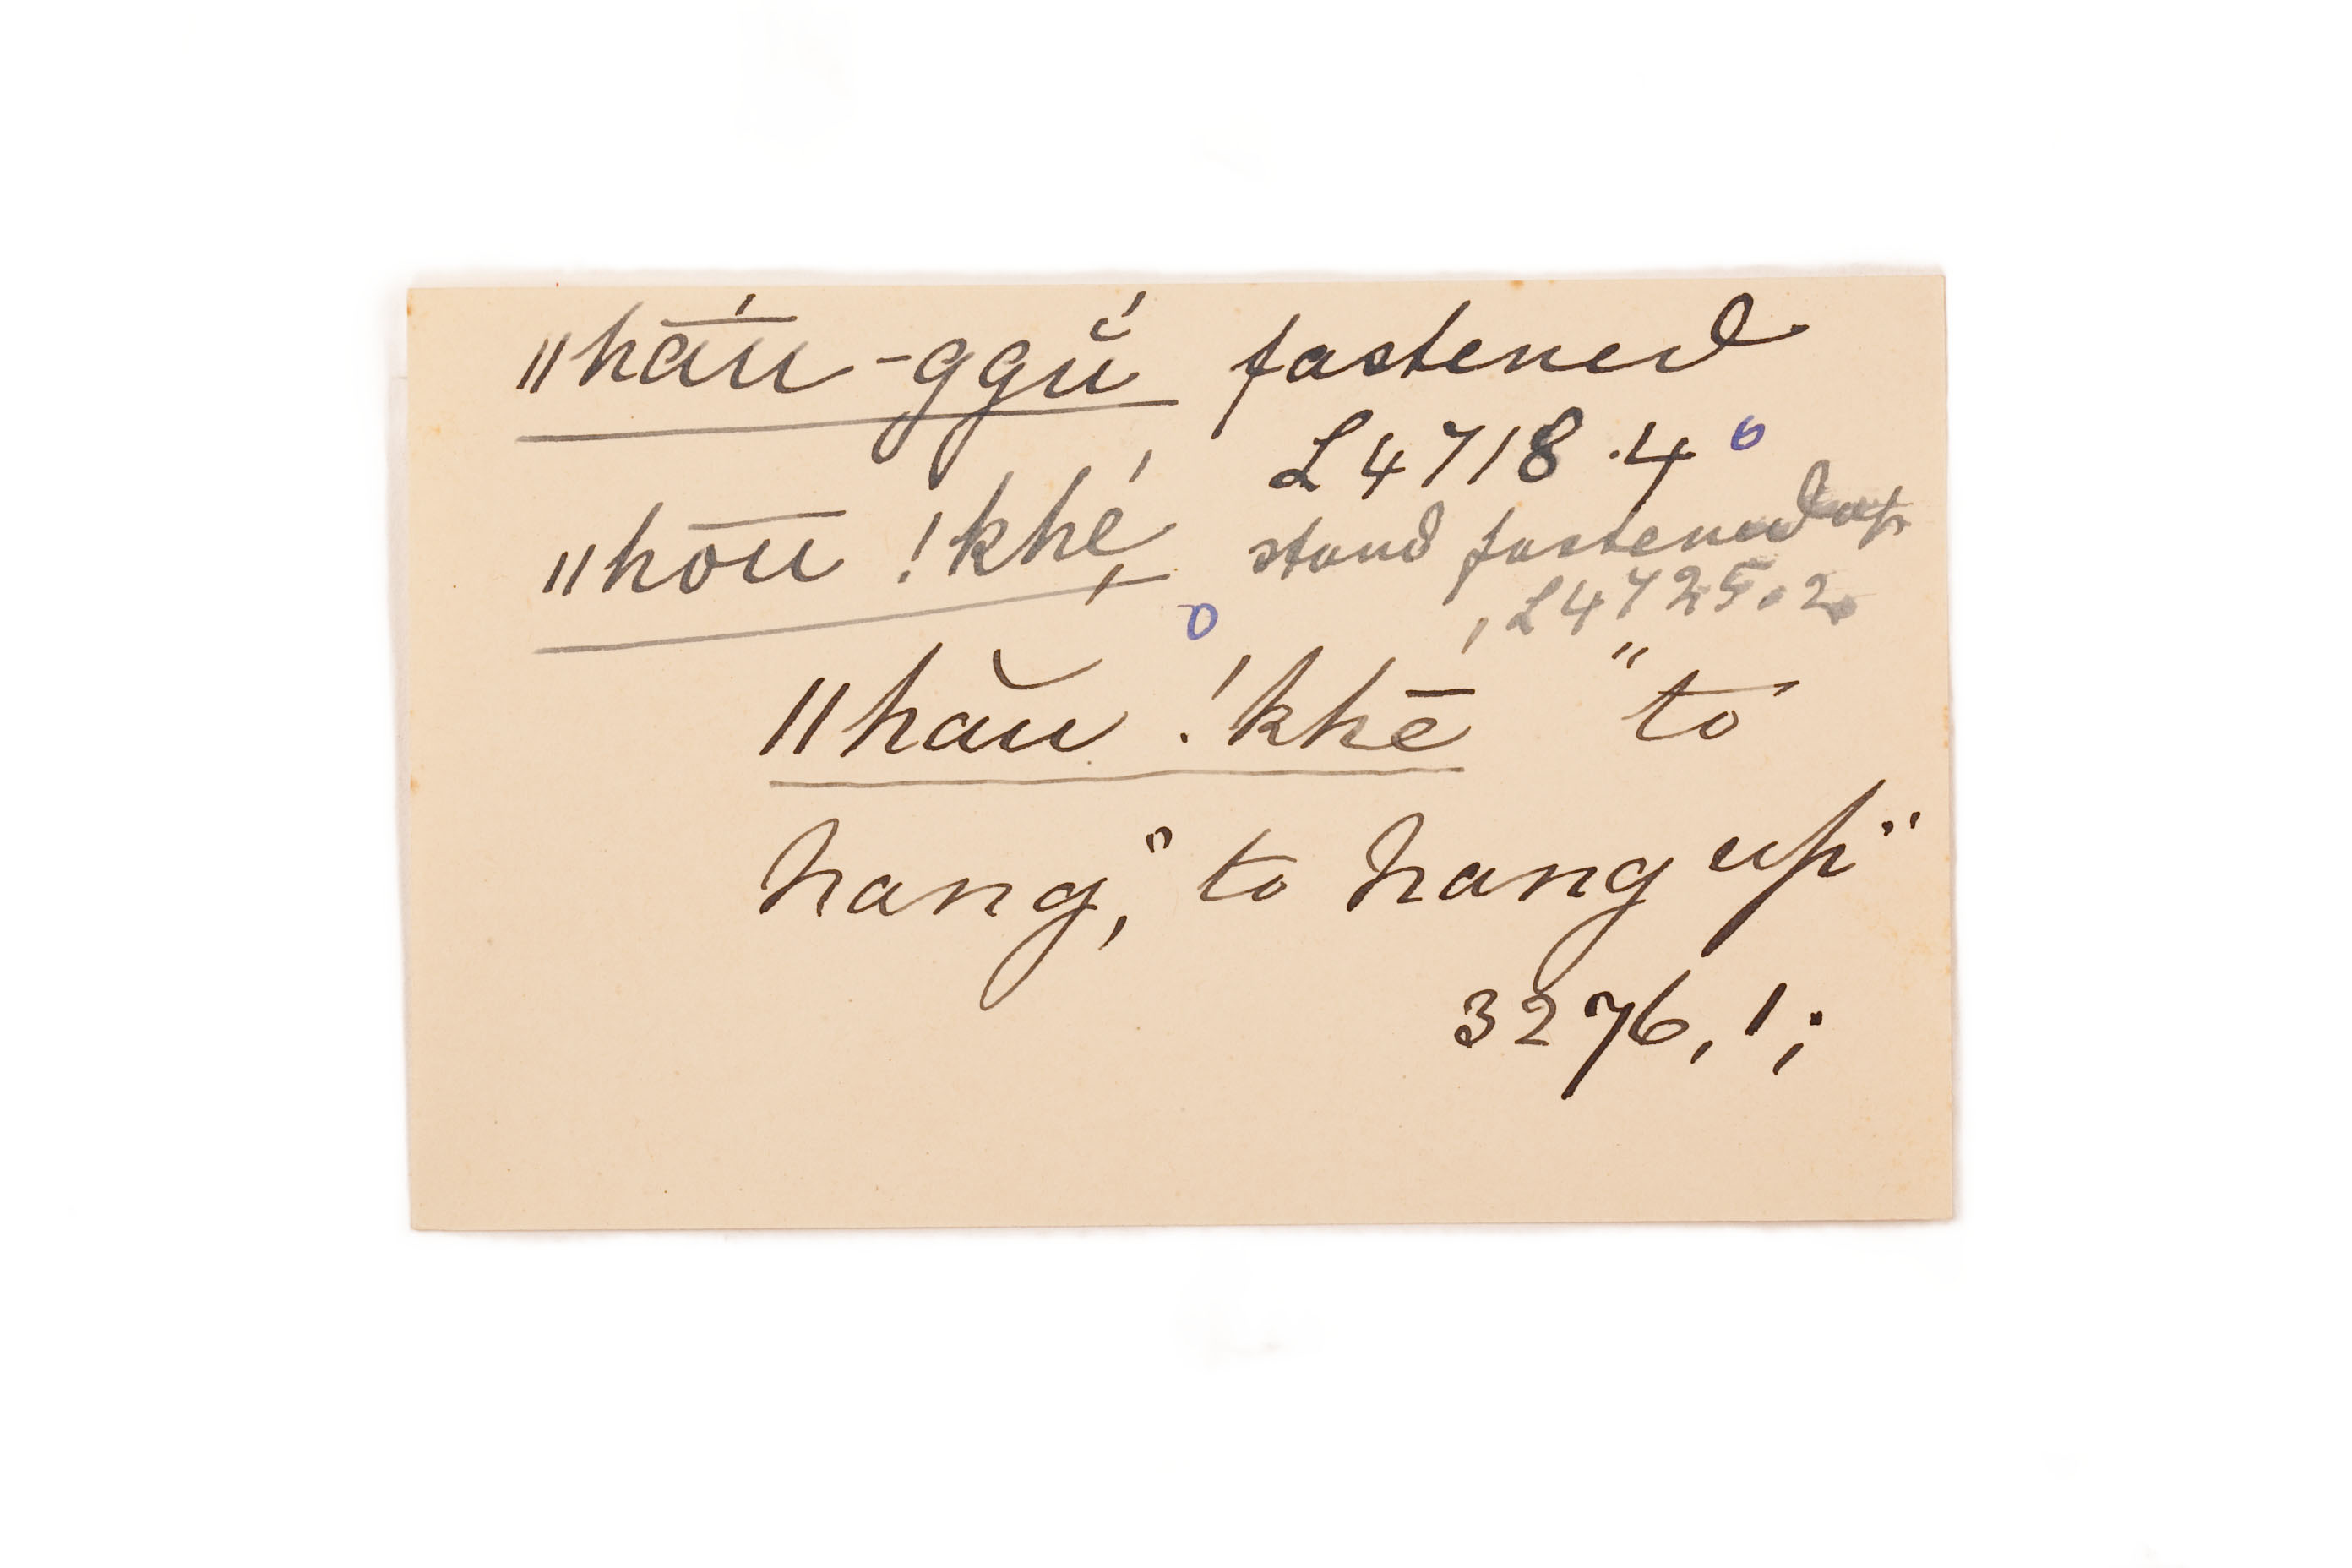 ǁhā́u-ggŭ́ fastened
L 4718.4 o
ǁhōū !khé̗ stand fastened up
o , L 4725.2
ǁhău !khē "to
hang," to hang up"
3276, 1;